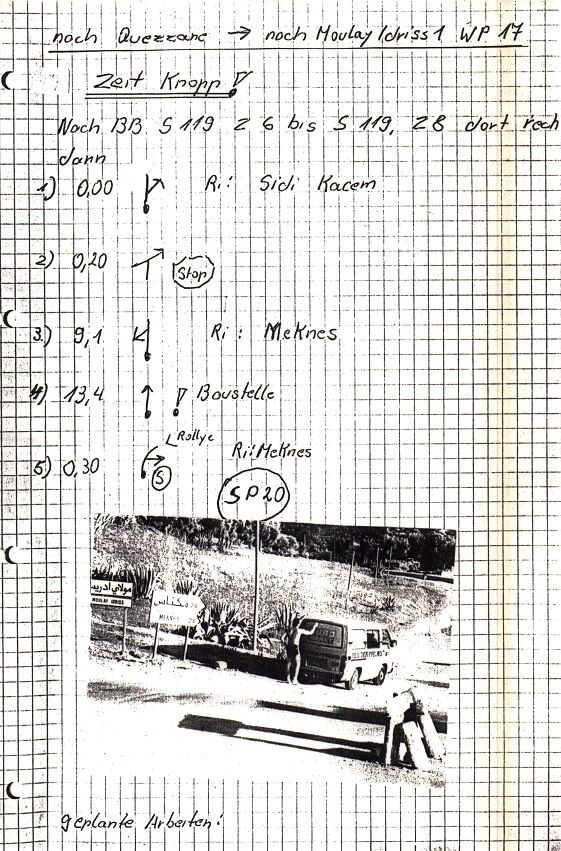 nach Quezzane → nach Moulay Idriss 1 WP 17
Zeit Knapp!
Nach BB S 119 Z 6 bis S 119, Z 8 dort rech
dann
1) 0,00 Ri: Sidi Kacem
2) 0,20 Stop
3.) 9,1 Ri: Meknes
4) 13,4 ! Baustelle
5) 0,30 S Rallye Ri: Meknes
SP20
مولاي ادريس
MOULAY IDRISS
مكناس
geplante Arbeiten: